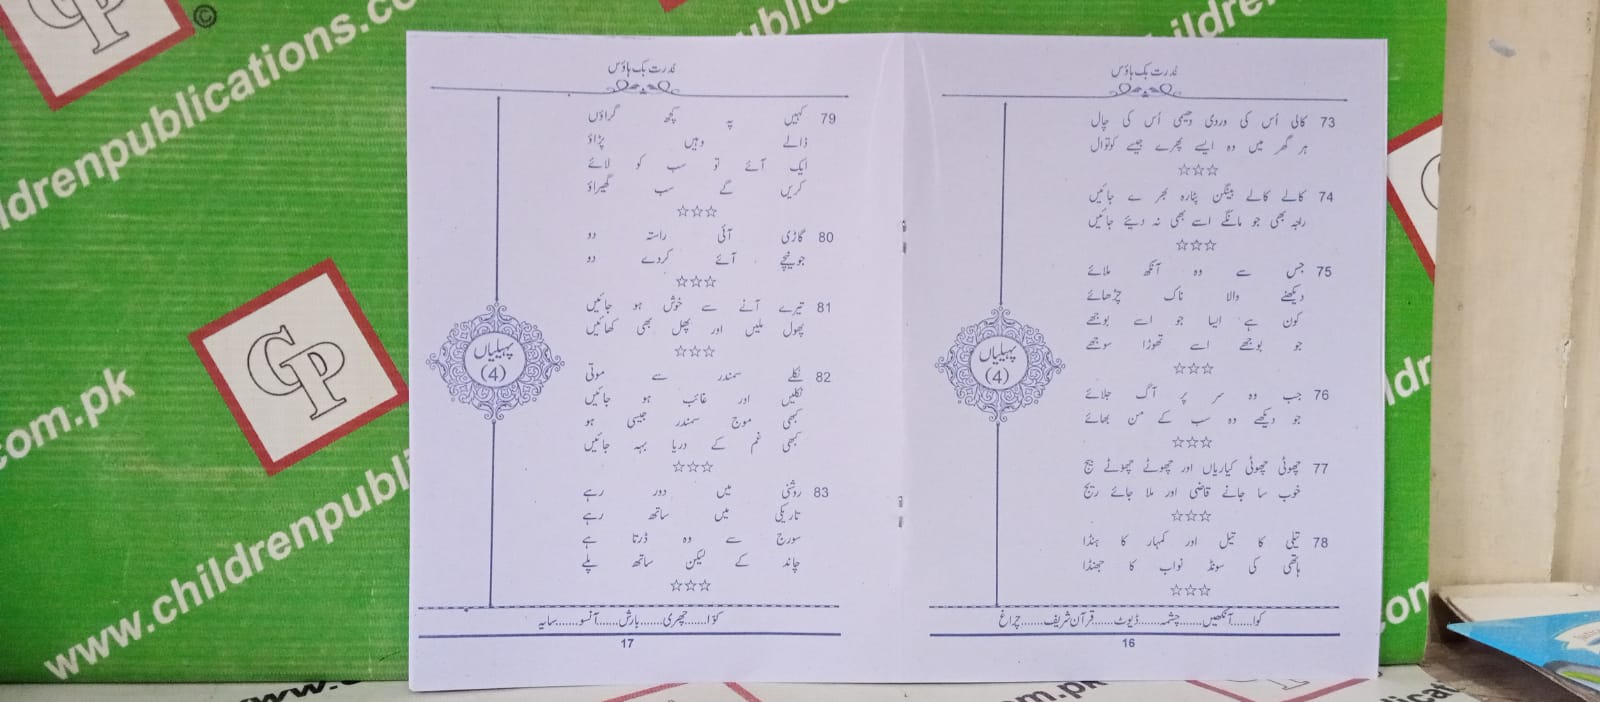 قدرت بک ہاؤس
73 کالی اُس کی وردی دھیمی اُس کی چال
ہر گھر میں وہ ایسے پھرے جیسے کوتوال
☆☆☆
74 کالے کالے بینگن پٹارہ بھر ے جائیں
راجہ بھی جو مانگے اسے بھی نہ دیئے جائیں
☆☆☆
75 جس سے وہ آنکھ ملائے
دیکھنے والا ناک چڑھائے
کون ہے ایسا جو اسے بوجھے
جو بوجھے اسے تھوڑا سوجھے
☆☆☆
76 جب وہ سر پر آگ جلائے
جو دیکھے وہ سب کے من بھائے
☆☆☆
77 چھوٹی چھوٹی کیاریاں اور چھوٹے چھوٹے بیج
خوب سا جانے قاضی اور ملا جائے ریج
☆☆☆
78 تیلی کا تیل اور کمہار کا ہنڈا
ہاتھی کی سونڈ نواب کا جھنڈا
☆☆☆
پہیلیاں
(4)
کوا......آنکھیں......چشمہ......ڈیوٹ......قرآن شریف......چراغ
16
قدرت بک ہاؤس
79 کہیں پہ کچھ گراؤں
ڈالے وہیں پڑاؤ
ایک آئے تو سب کو لائے
کریں گے سب گھیراؤ
☆☆☆
80 گاڑی آئی راستہ دو
جونیچے آئے کردے دو
☆☆☆
81 تیرے آنے سے خوش ہو جائیں
پھول ملیں اور پھل بھی کھائیں
☆☆☆
82 نکلے سمندر سے موتی
نکلیں اور غائب ہو جائیں
کبھی موج سمندر جیسی ہو
کبھی غم کے دریا بہہ جائیں
☆☆☆
83 روشنی میں دور رہے
تاریکی میں ساتھ رہے
سورج سے وہ ڈرتا ہے
چاند کے لیکن ساتھ پلے
☆☆☆
پہیلیاں
(4)
کوّا......چھری......بارش......آنسو......سایہ
17
CP
©
www.childrenpublications.com.pk